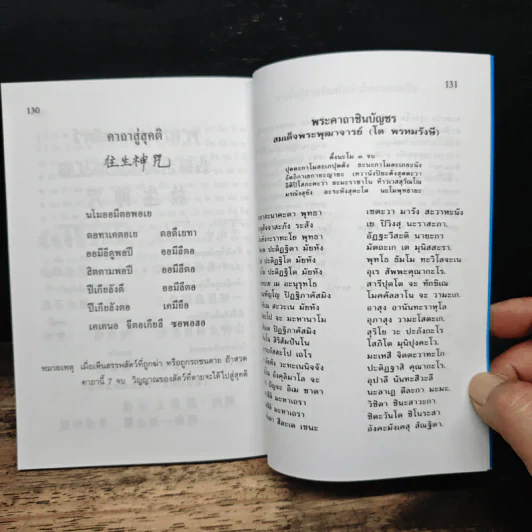 130
คาถาสู่สุคติ
往生神咒
นโมออมีตอพอเย
ตอทาเคตอเย ตอตีเยทา
ออมีลีตูพอปี ออมีลีตอ
สิตตามพอปี ออมีลีตอ
ปีเกียลังตี ออมีลีตอ
ปีเกียลังตอ เคมียีอ
เคเคนอ จีตอเกียลี ซอพอสอ
หมายเหตุ เมื่อเห็นสรรพสัตว์ที่ถูกฆ่า หรือถูกรถชนตาย ถ้าสวด
คาถานี้ 7 จบ วิญญาณของสัตว์ที่ตายจะได้ไปสู่สุคติ
131
พระคาถาชินบัญชร
สมเด็จพระพุฒาจารย์ (โต พรหมรังษี)
ตั้งนะโม ๓ จบ
ปุตตะกาโมละเภปุตตัง ธะนะกาโมละเภธะนัง
อัตถิกาเยกายะญายะ เทวานังปิยะตังสุตตะวา
อิติปิโสภะคะวา ยะมะราชาโน ท้าวเวสสุวัณโณ
มรณังสุขัง อะระหังสุคะโต นะโมพุทธายะ
พุทธา เชตะวา มารัง สะวาหะนัง
ระสัง เย ปิวิงสุ นะราสะภา.
พุทธา อัฏฐะวีสะติ นายะกา
มัยหัง มัตถะเก เต มุนิสสะรา.
มัยหัง พุทโธ ธัมโม ทะวิโลจะเน
มัยหัง อุเร สัพพะคุณากะโร.
เม อะนุรุทโธ สารีปุตโต จะ ทักขิเณ
โมคคัลลาโน จะ วามะเก.
มัยหัง อาสุง อานันทะราหุโล
จะ มะหานาโม อุภาสุง วามะโสตะเก.
สุริโย วะ ปะภังกะโร
สิริสัมปันโน โสภิโต มุนิปุงคะโว.
เถโร มะเหสี จิตตะวาทะโก
ปะติฏฐาสิ คุณากะโร.
อุปาลี นันทะสีวะลี
นะลาเฏ ตีละกา มะมะ.
มะหาเถรา วิชิตา ชินะสาวะกา
มะหาเถรา ชิตะวันโต ชิโนระสา
สีละเต เชนะ อังคะมังเคสุ สัณฐิตา.